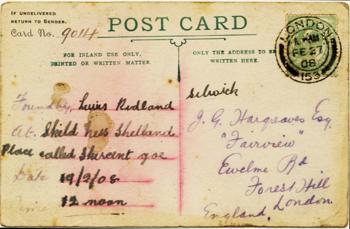 IF UNDELIVERED
RETURN TO SENDER.
Card No. 9014
POST CARD
FOR INLAND USE ONLY,
PRINTED OR WRITTEN MATTER
ONLY THE ADDRESS TO BE
WRITTEN HERE.
LONDON
FE 27
08
Found by Louis Redland
At Skild Ness Shetland
Place called goe
Date 19/2/08
Time 12 noon
Selwick
J. G. Hargreaves Esq
"Fairview"
Ewelme Rd
Forest Hill
London.
England.